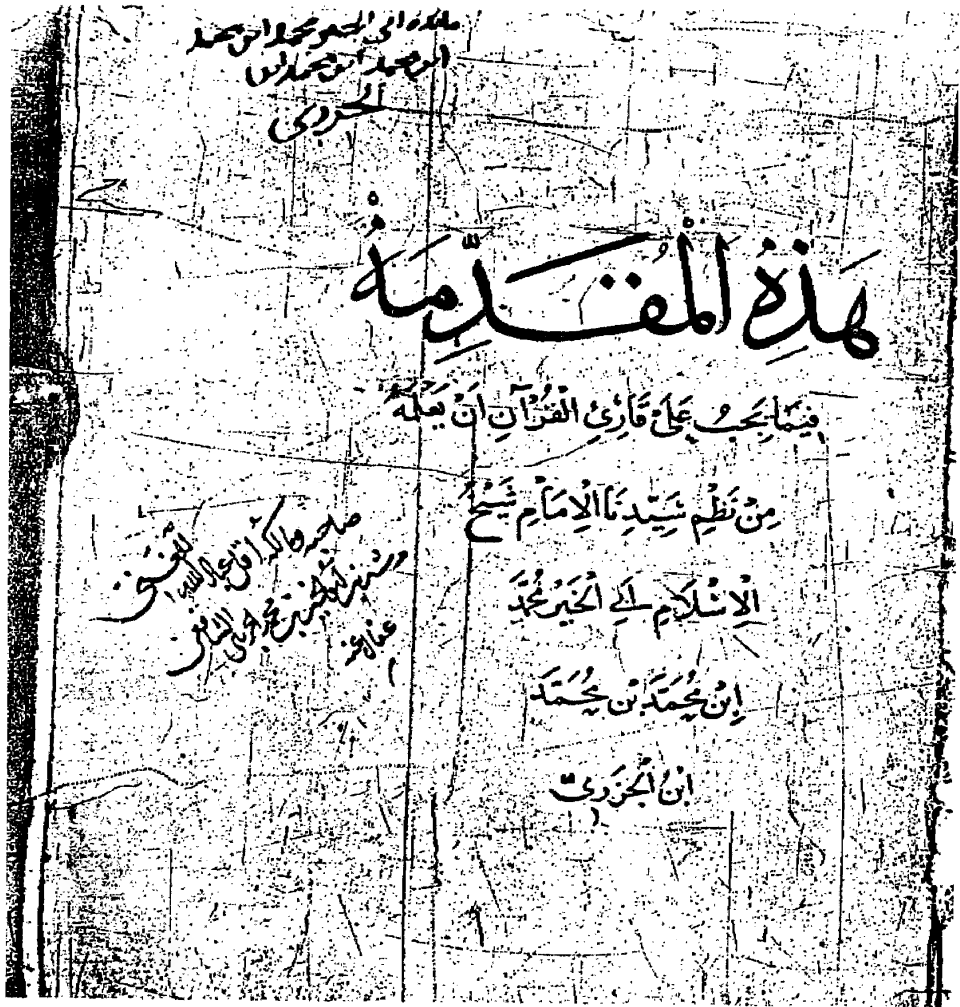 ابى الخير محمد ابن محمد
ابن محمد ابن محمد ابن
الجزرى
هَذِهِ الْمُقَدِّمَهْ
فِيْمَا يَجِبُ عَلَىْ قَارِئِ الْقُرْآنِ اَنْ يَعْلَمَهُ
مِنْ نَظْمِ سَيِّدِنَا الْاِمَامِ شَيْخُ
الْاِسْلَامِ اَبِي الْخَيْرِ مُحَمَّدَ
اِبْنِ مُحَمَّدَ بْنِ مُحَمَّدَ
ابْنُ الْجَزَرِىّ
صاحبه ومالكه أقل عباد الله
محمد الشافعى